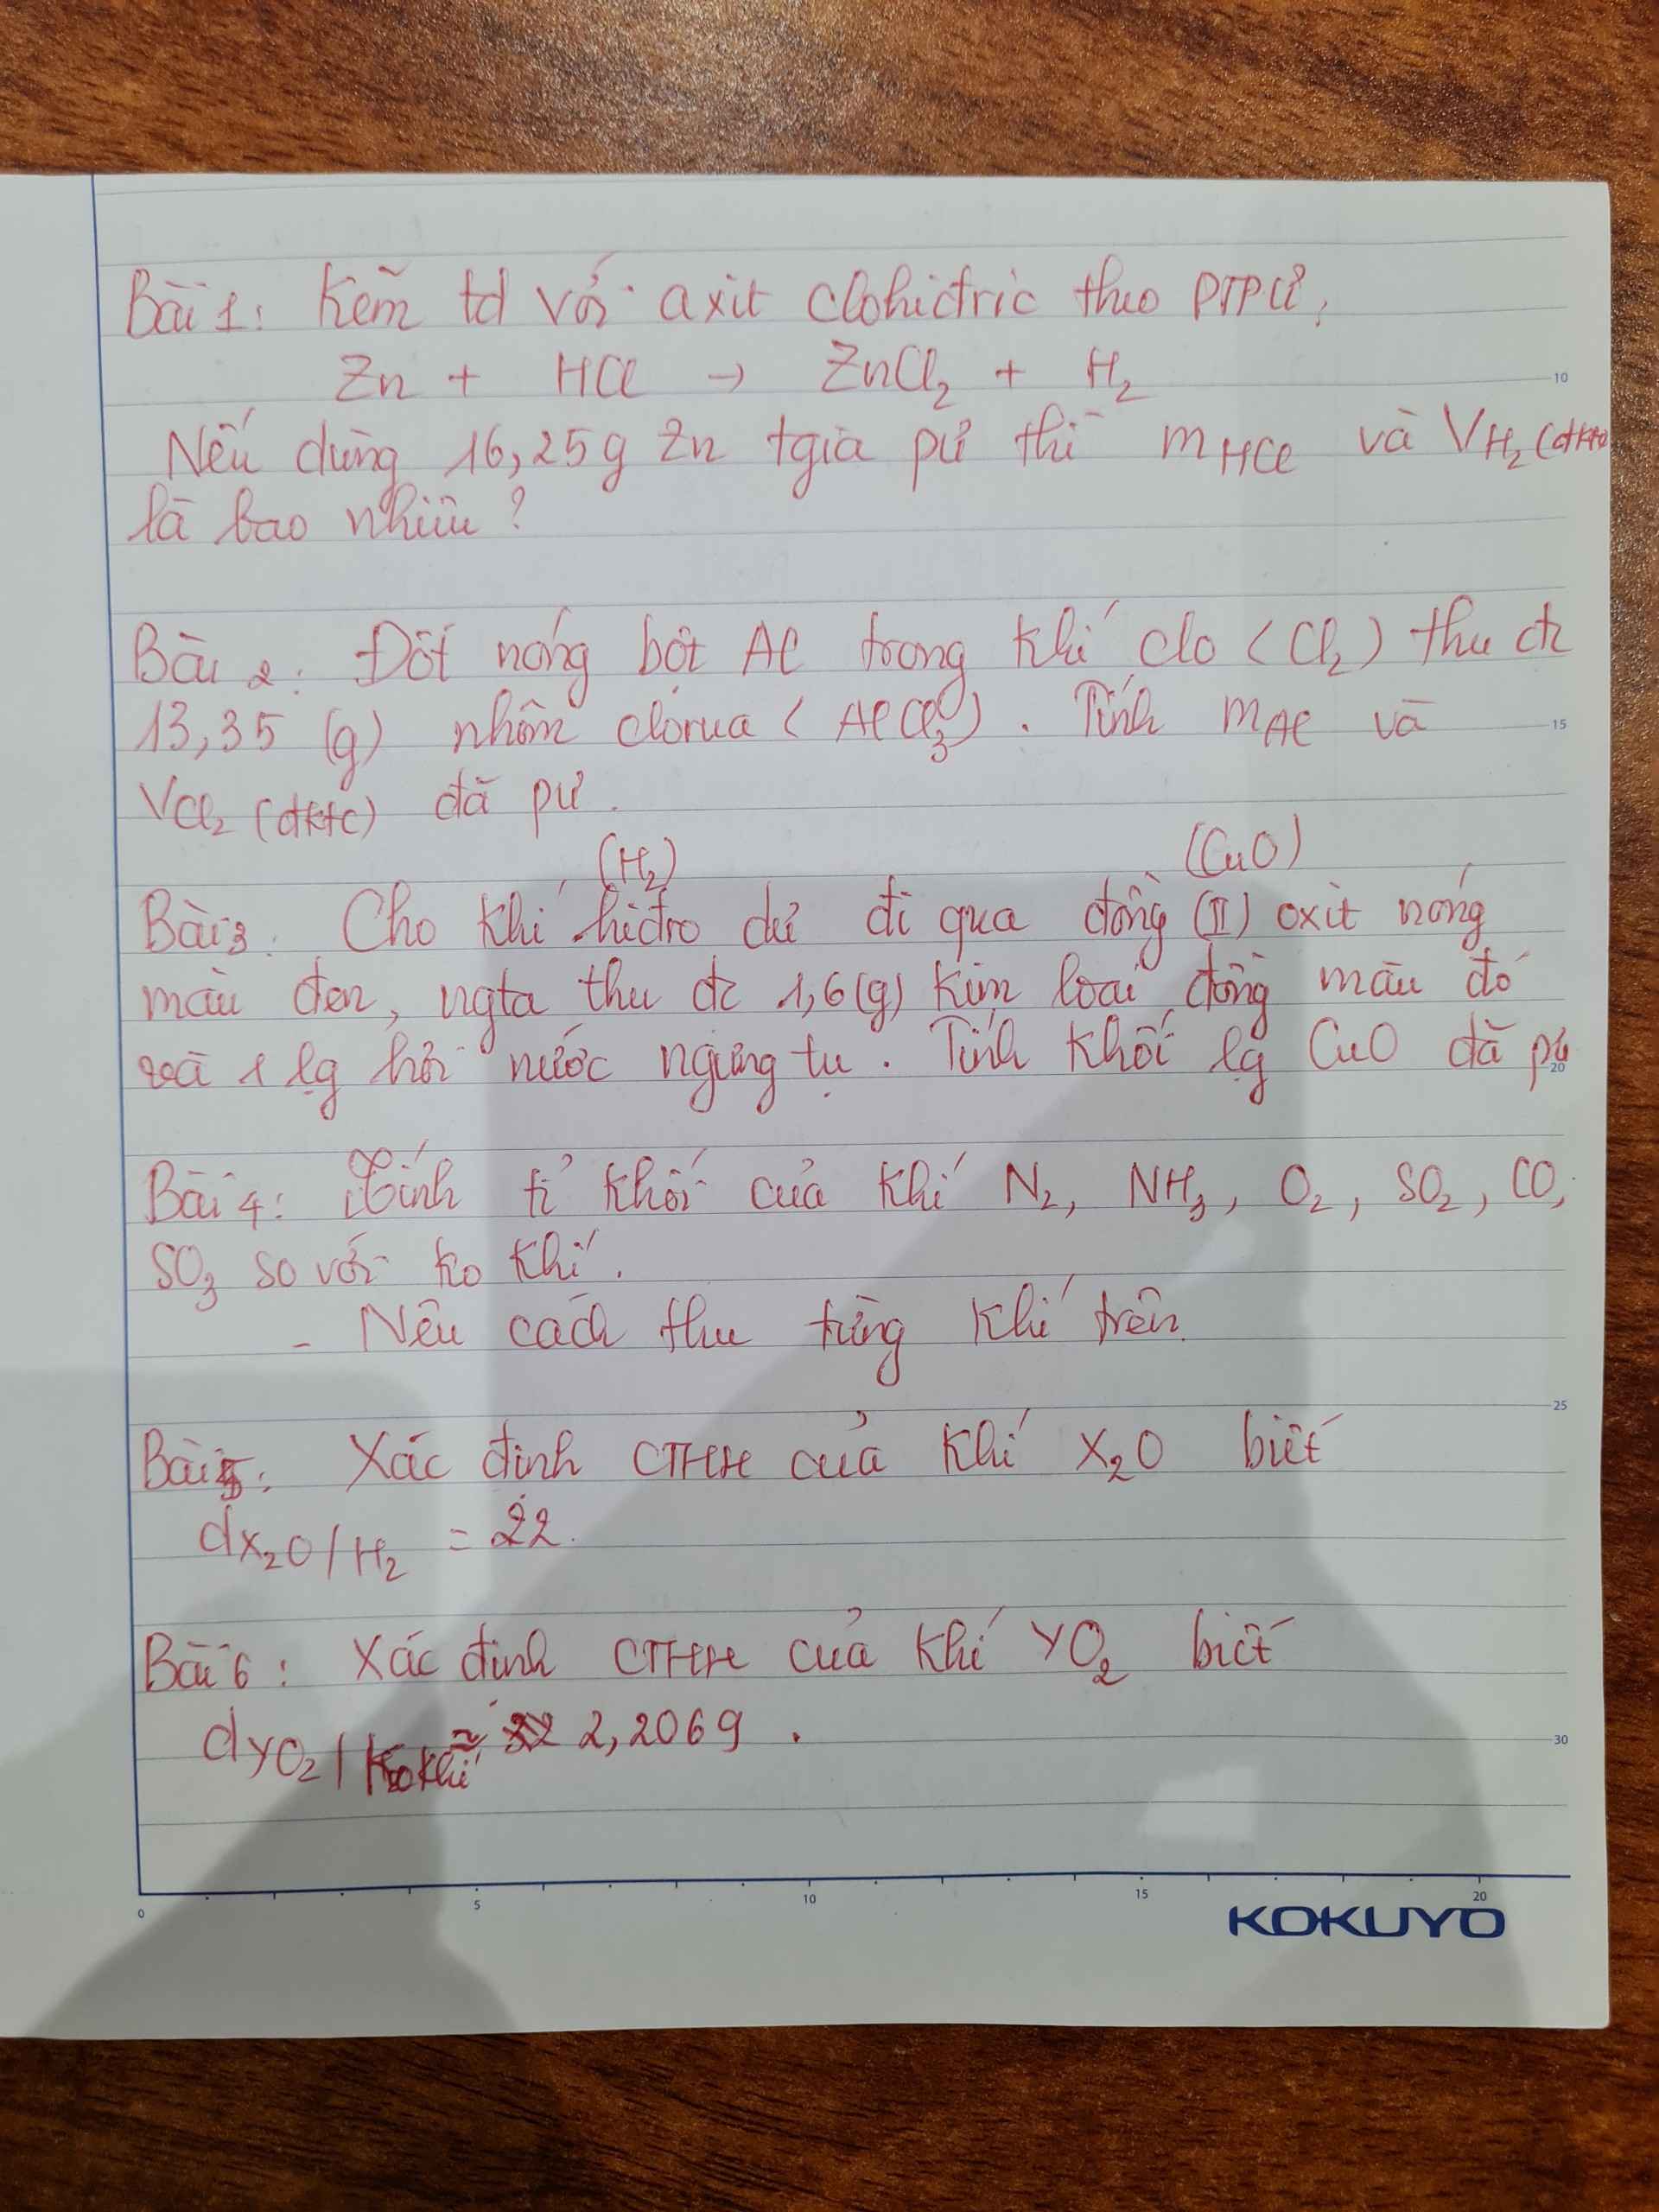 Bài 1: Kẽm td với axit clohiđric theo PTPƯ:
Zn + HCl → ZnCl₂ + H₂
Nếu dùng 16,25g Zn tgia pư thì mHCl và VH₂ (đktc)
là bao nhiêu?
Bài 2: Đốt nóng bột Al trong khí clo (Cl₂) thu đc
13,35 (g) nhôm clorua (AlCl₃). Tính mAl và
VCl₂ (đktc) đã pư.
(H₂) (CuO)
Bài 3. Cho khí hiđro dư đi qua đồng (II) oxit nóng
màu đen, ngta thu đc 1,6(g) kim loại đồng màu đỏ
và 1 lg hơi nước ngưng tụ. Tính khối lg CuO đã pư
Bài 4: Tính tỉ khối của khí N₂, NH₃, O₂, SO₂, CO,
SO₃ so với ko khí.
- Nêu cách thu từng khí trên.
Bài 5: Xác định CTHH của khí X₂O biết
dX₂O/H₂ = 22.
Bài 6: Xác định CTHH của khí YO₂ biết
dYO₂/ko khí ≈ 2,2069.
10
15
20
25
30
0 5 10 15 20
KOKUYO